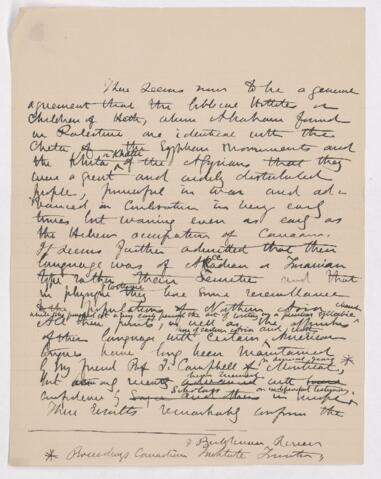 There seems now to be a general
agreement that the biblical Hittites or
Children of Heth, whom Abraham found
in Palestine are identical with the
Cheta of the Egyptian Monuments and
the Khita or Khatti of the Assyrians that they
were a great and widely distributed
people, powerful in war and ad-
vanced in civilization in very early
times but waning even as early as
the Hebrew occupation of Canaan.
It seems further admitted that their
language was of Accadian or Turanian
type rather than Semitic and that
in physique they bore some resemblance
to the populations of Northern Asia
All these points, as well as the
of their language with certain American
tongues have long been maintained
by my friend Prof J. Campbell of Montreal, *
but among recent with
confidence by
These results remarkably confirm the
& Review
* Proceedings Canadian Institute Toronto